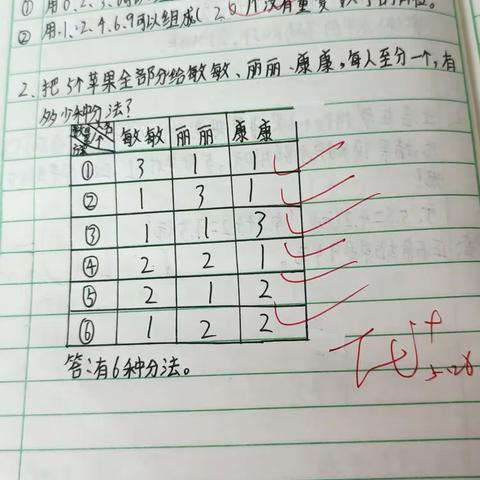 ① 用0、2、3、
② 用1、2、4、6、9可以组成(20)个没有重复
2、把5个苹果全部分给敏敏、丽丽、康康,每人至分一个,有
多少种分法?
敏敏 丽丽 康康
① 3 1 1
② 1 3 1
③ 1 1 3
④ 2 2 1
⑤ 2 1 2
⑥ 1 2 2
答:有6种分法。
5.28